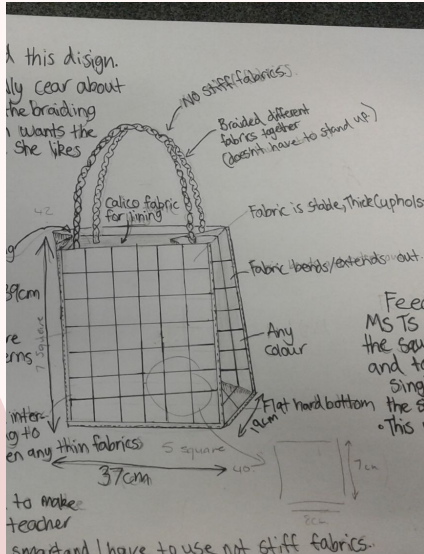 this disign.
cear about
the braiding
wants the
She likes
NO stiff fabrics
Braided different
fabrics together
(doesn't have to stand up)
Calico fabric
for lining
42
Fabric is stable, Thick
Fabric bends/extends out
39cm
7 square
Any
colour
Feed
MS TS
the squ
and to
sing
the s
• This
Flat hard bottom
19cm
inter
g to
en any thin fabrics
5 square
37cm
40
7cm
8cm
to make
teacher
smart and I have to use not stiff fabrics.